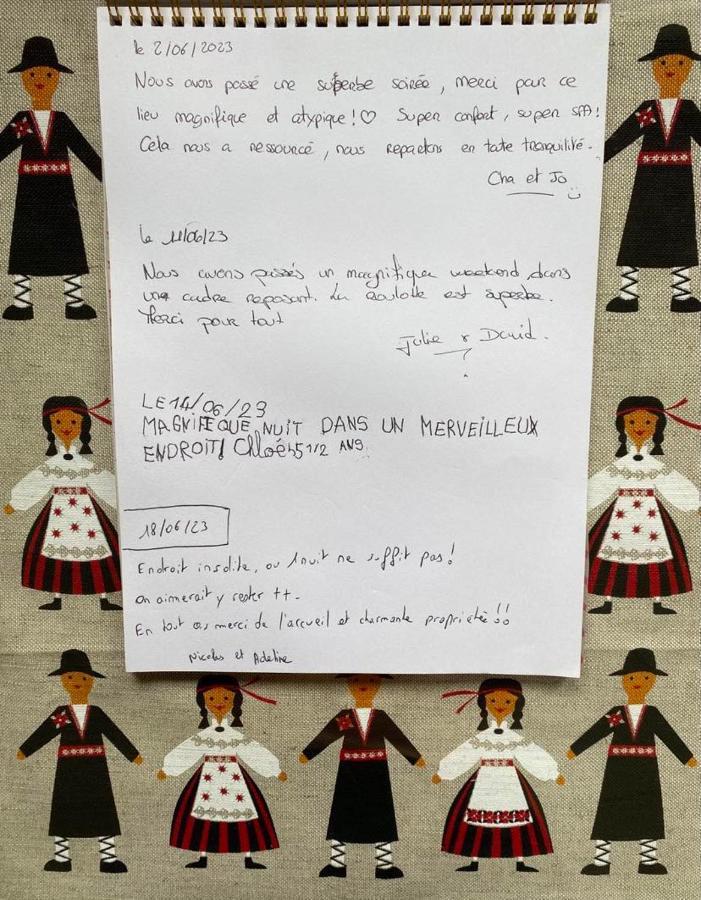 le 2/06/2023
Nous avons passé une superbe soirée, merci par ce
lieu magnifique et atypique ! ♡ Super confort, super SPA !
Cela nous a ressourcé, nous repartons en toute tranquilité.
Cha et Jo
le 11/06/23
Nous avons passés un magnifique weekend dans
une cadre reposant. La roulotte est superbe.
Merci pour tout
Julie & David.
LE 14/06/23
MAGNIFIQUE NUIT DANS UN MERVEILLEUX
ENDROIT! Chloé 5 1/2 ANS
18/06/23
Endroit insolite, où 1 nuit ne suffit pas !
On aimerait y rester ++.
En tout cas merci de l'accueil et charmante propriétée !!
Nicolas et Adeline